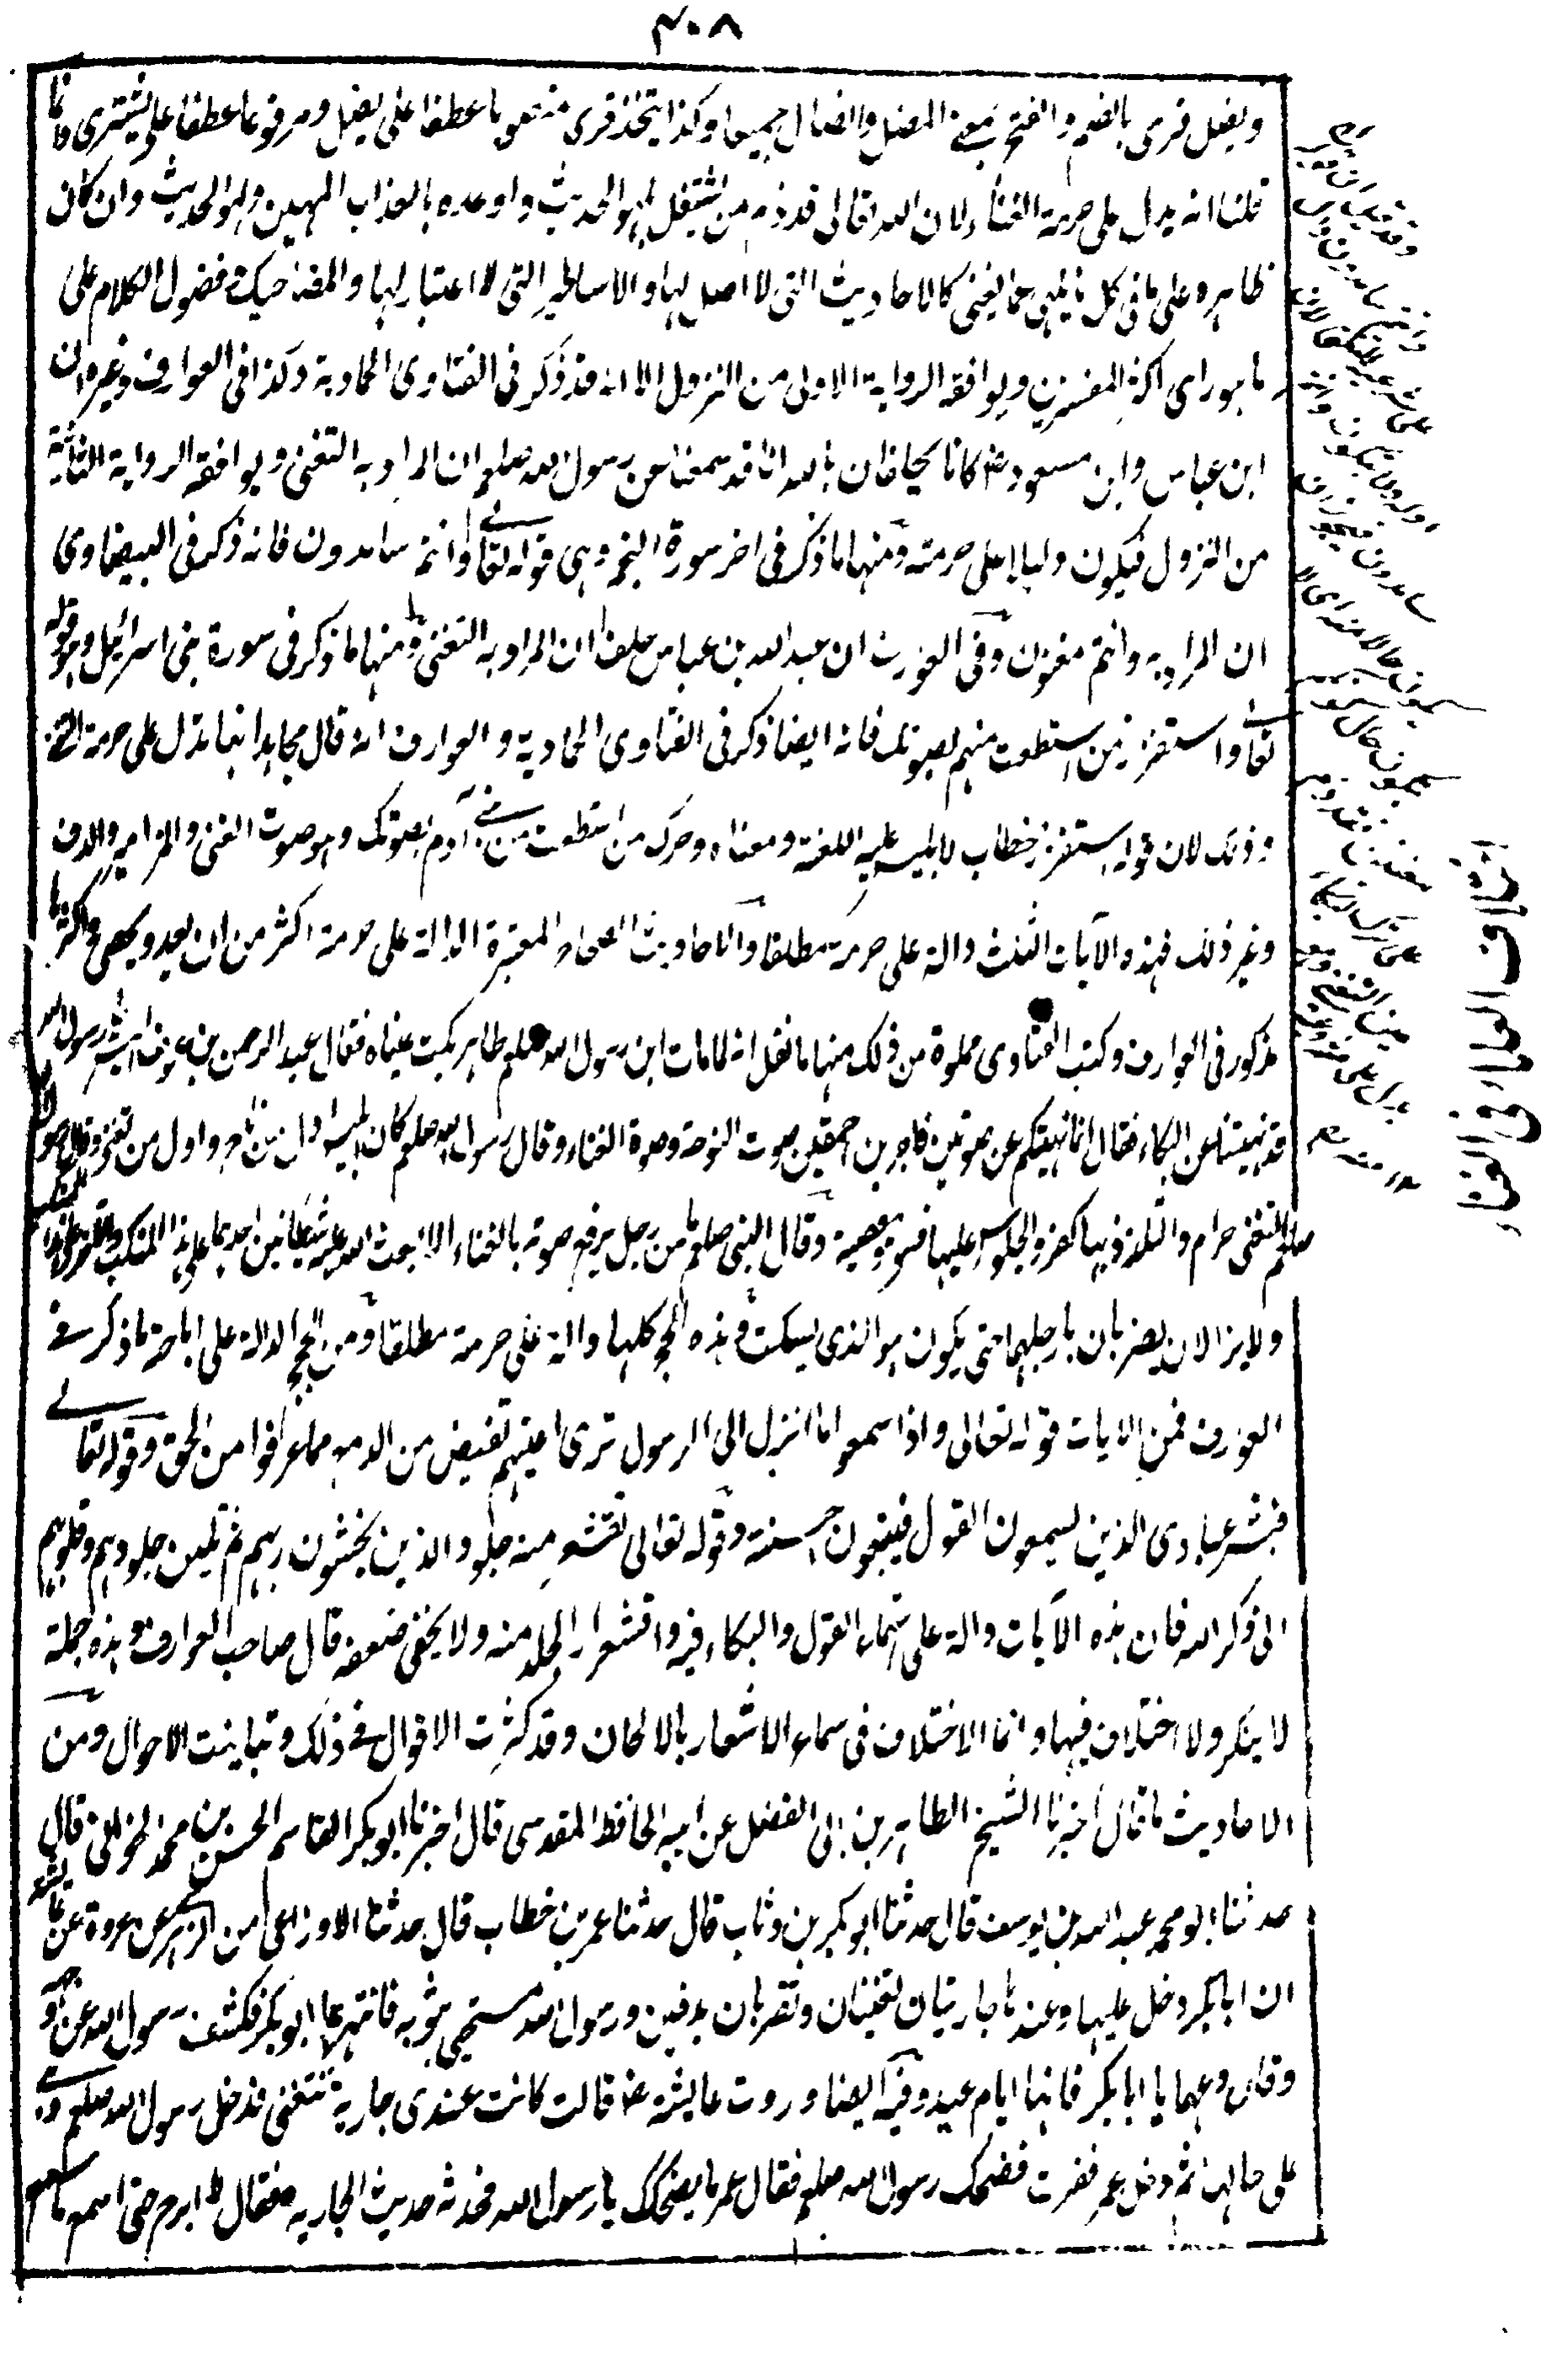 ٣٠٨
ويضل قرئ بالضم والفتح بمعنى المضل والضال جميعا وكذا يتخذ قرئ منصوبا عطفا على يضل ومرفوعا عطفا على يشترى وانما
قلنا انه يدل على حرمة الغناء لان الله تعالى قد ذم من اشتغل لهو الحديث واوعده بالعذاب المهين ولهو الحديث وان كان
ظاهره على ما فى كل ما يلهى عما يعنى كالاحاديث التى لا اصل لها والاساطير التى لا اعتبار لها والمضاحيك وفضول الكلام على
ما هو راى اكثر المفسرين ويوافقه الرواية الاولى من النزول الا انه قد ذكر فى الفتاوى الحمادية وكذا فى العوارف وغيره ان
ابن عباس وابن مسعود رض كانا يحلفان بالله انا قد سمعنا عن رسول الله صلعم ان المراد به التغنى ويوافقه الرواية الثانية
من النزول فيكون دليلا على حرمته ومنها ما ذكر فى اخر سورة النجم وهى قوله تعالى وانتم سامدون فانه ذكر فى البيضاوى
ان المراد به وانتم مغنون وفى العوارف ان عبد الله بن عباس حلف ان المراد به التغنى ومنها ما ذكر فى سورة بنى اسرائيل وهو قوله
تعالى واستفزز من استطعت منهم بصوتك فانه ايضا ذكر فى الفتاوى الحمادية والعوارف انه قال مجاهد انها تدل على حرمة التغنى
وذلك لان قوله استفزز خطاب لابليس عليه اللعنة ومعناه وحرك من استطعت من بنى آدم بصوتك وهو صوت الغنى والمزامير والدف
وغير ذلك فهذه الآيات الثلث دالة على حرمة مطلقا والاحاديث الصحاح المعتبرة الدالة على حرمة اكثر من ان يعد ويحصى واكثرها
مذكور فى العوارف وكتب الفتاوى مملوة من ذلك منها ما نقل انه لما مات ابن رسول الله صلعم طاهر بكت عيناه فقال عبد الرحمن بن عوف يا رسول الله
قد نهيتنا عن البكاء فقال انما نهيتكم عن صوتين فاجرين احمقين صوت النوحة وصوة الغناء وقال رسول الله صلعم كان ابليس اول من ناح واول من تغنى وقال رسول الله
صلعم التغنى حرام والتلذذ بها كفر والجلوس عليها فسق ومعصية وقال النبى صلعم ما من رجل يرفع صوته بالغناء الا بعث الله عليه شيطانين احدهما على هذا المنكب والاخر على هذا
ولا يزالان يضربان بارجلهما حتى يكون هو الذى يسكت وهذه الحجج كلها دالة على حرمة مطلقا ومن الحجج الدالة على اباحة ما ذكر فى
العوارف فمن الايات قوله تعالى واذا سمعوا ما انزل الى الرسول ترى اعينهم تفيض من الدمع مما عرفوا من الحق وقوله تعالى
فبشر عبادى الذين يسمعون القول فيتبعون احسنه وقوله تعالى تقشعر منه جلود الذين يخشون ربهم ثم تلين جلودهم وقلوبهم
الى ذكر الله فان هذه الآيات دالة على استماع القول والبكاء فيه واقشعرار الجلد منه ولا يخفى ضعفه قال صاحب العوارف وهذه جملة
لا ينكر ولا اختلاف فيها وانما الاختلاف فى سماع الاشعار بالالحان وقد كثرت الاقوال فى ذلك وتباينت الاحوال ومن
الاحاديث ما قال اخبرنا الشيخ الطاهر بن ابى الفضل عن ابيه الحافظ المقدسى قال اخبرنا ابو بكر القاسم الحسن بن محمد الخوافى قال
حدثنا ابو محمد عبد الله بن يوسف قال حدثنا ابو بكر بن وثاب قال حدثنا عمر بن خطاب قال حدثنا الاوزاعى من الزهرى عن عروة عن عائشة
ان ابا بكر دخل عليها وعندها جاريتان تغنيان وتضربان بدفين ورسول الله مستجى بثوبه فانتهرهما ابو بكر فكشف رسول الله عن وجهه
وقال دعهما يا ابا بكر فانها ايام عيد وفيه ايضا وروت عايشة رض قالت كانت عندى جارية تتغنى فدخل رسول الله صلعم وهى
على حالها ثم دخل عمر ففرت فضحك رسول الله صلعم فقال عمر ما يضحكك يا رسول الله فحدثه حديث الجارية فقال لا ابرح حتى اسمع ما سمع
اختلاف العلماء فى الغناء